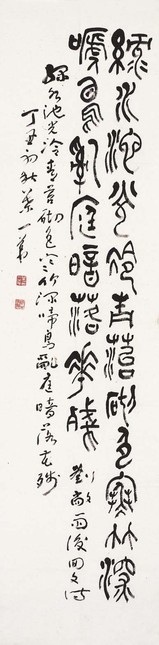 綠水池光冷青苔砌色寒竹深
啼鳥亂庭暗落花殘 劉敞雨後回文詩
綠水池光冷青苔砌色寒竹深啼鳥亂庭暗落花殘
丁丑初秋葉一葦